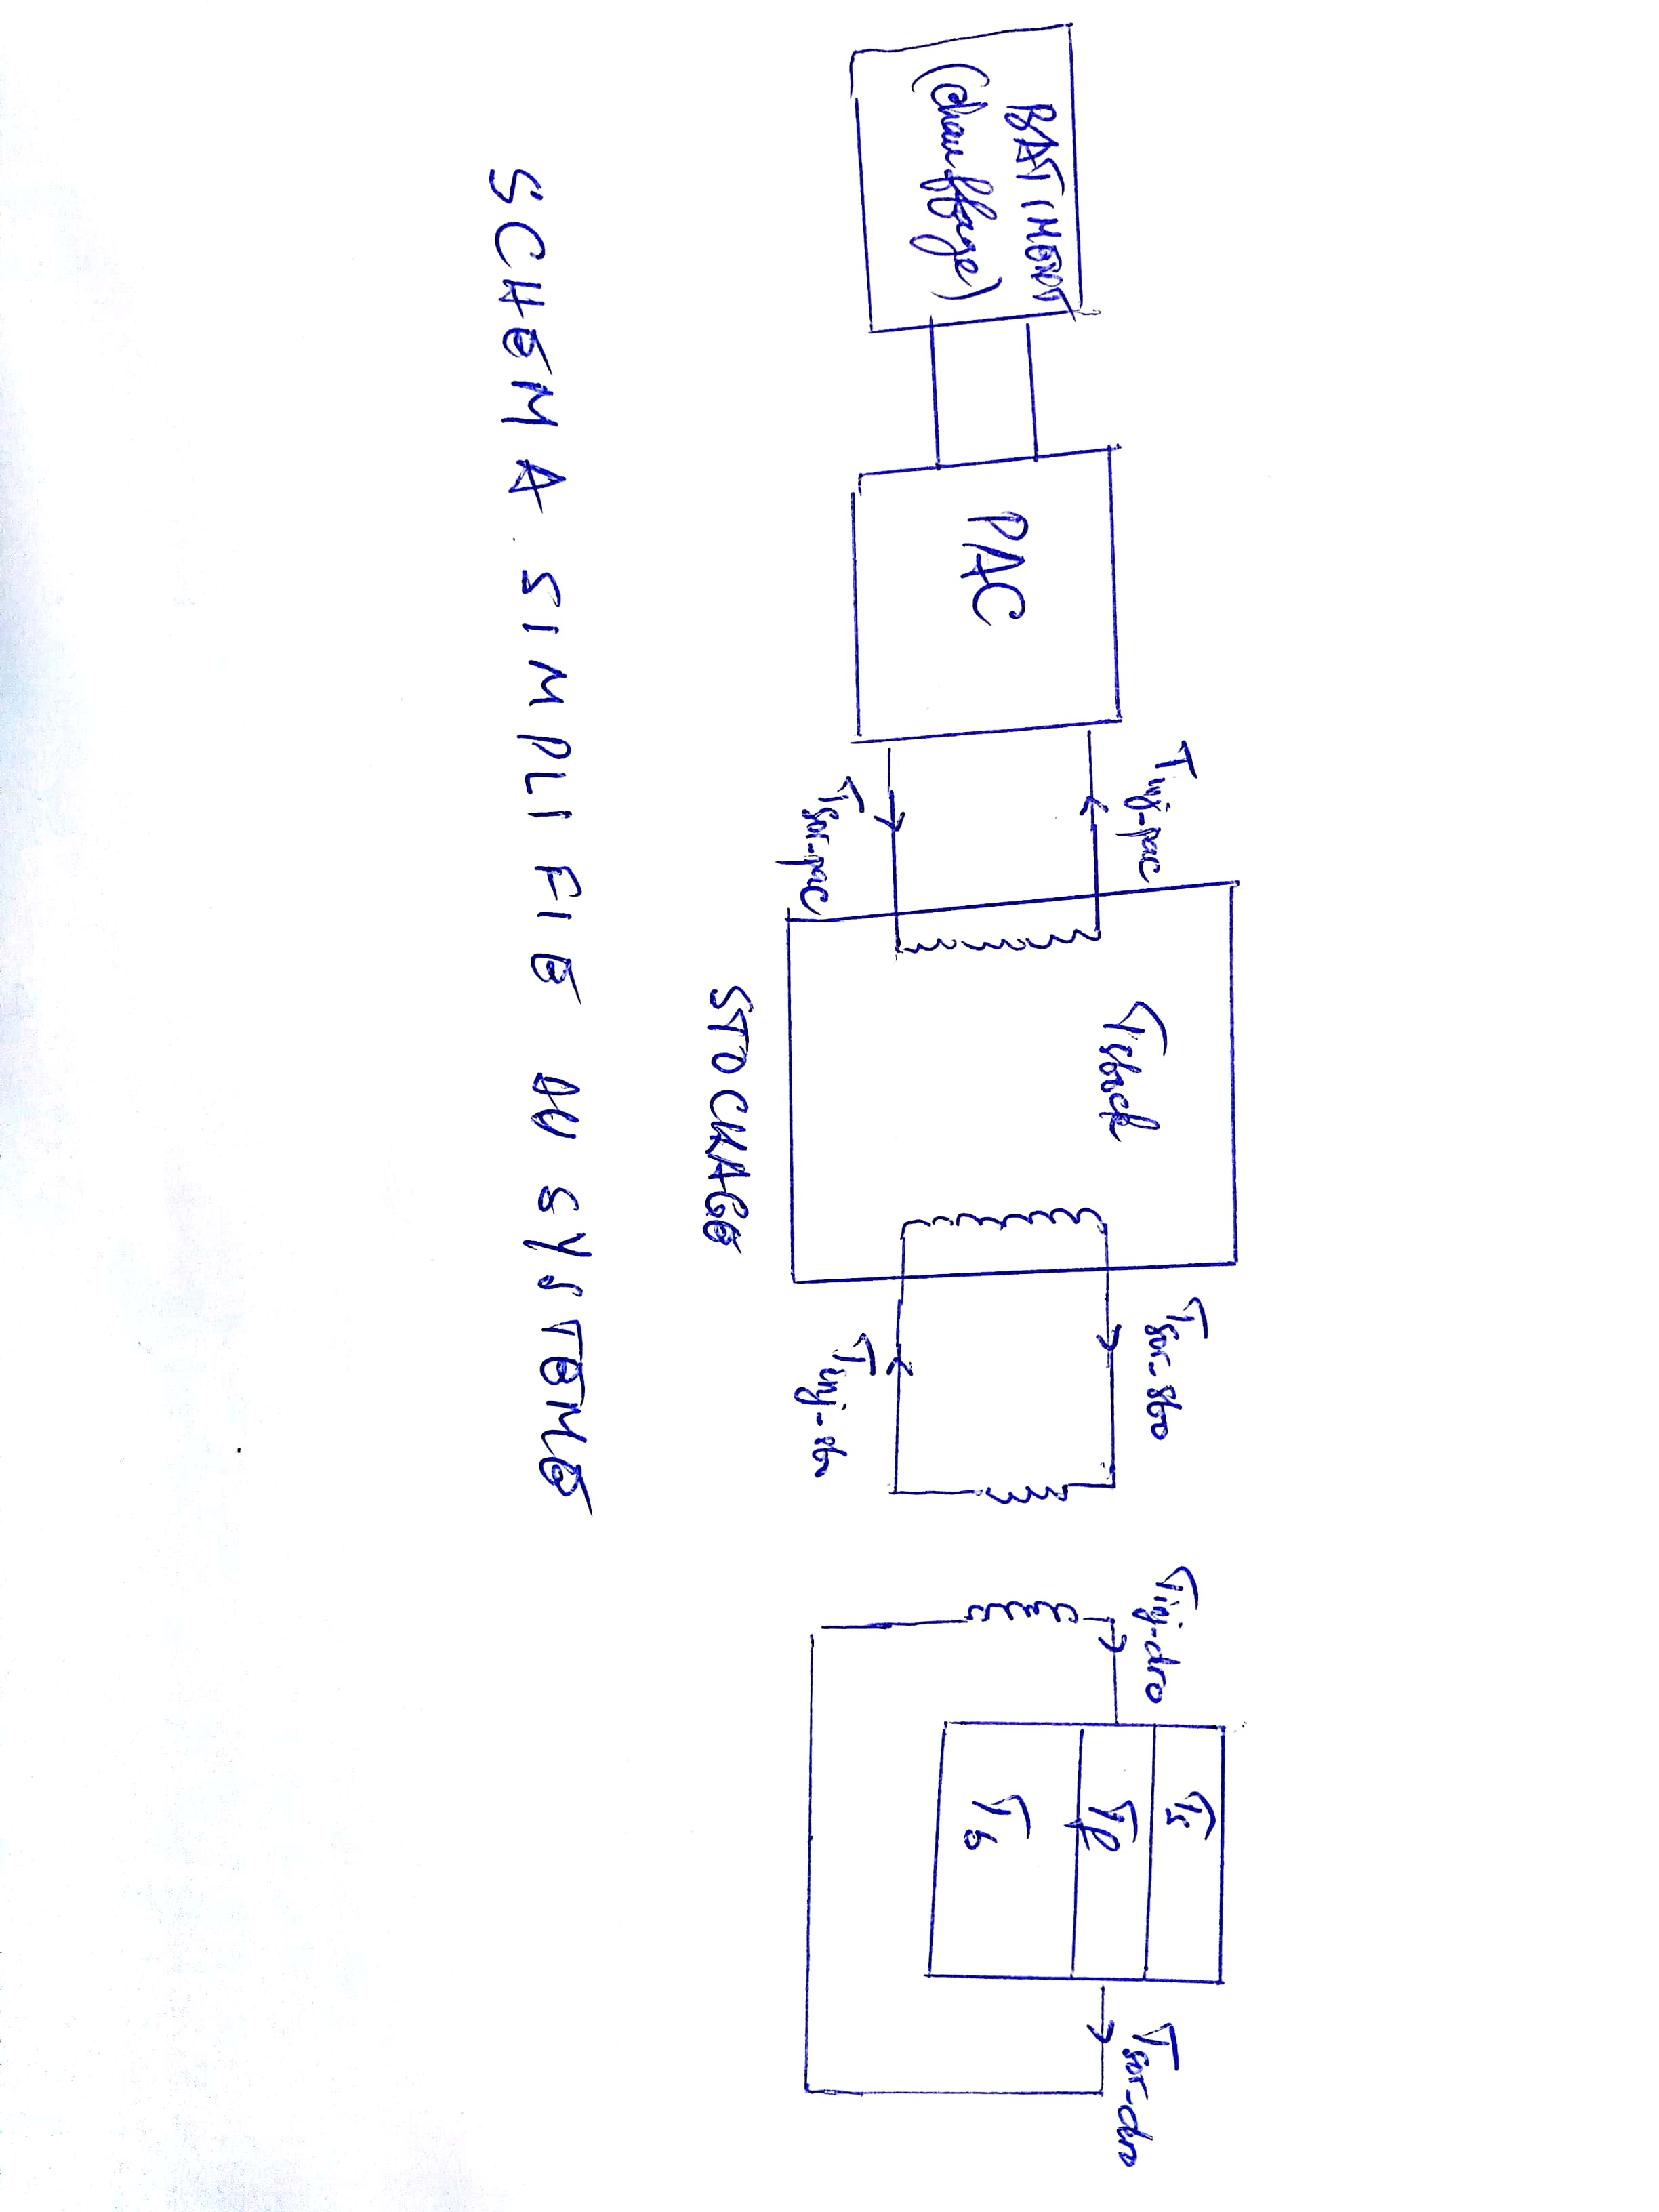 BATIMENT
(chauffage)
PAC
T inj-pac
T sor-pac
T stock
STOCKAGE
T sor-sto
T inj-sto
T inj-dro
Ts
Tf
Tb
T sor-dro
SCHEMA SIMPLIFIE DU SYSTEME